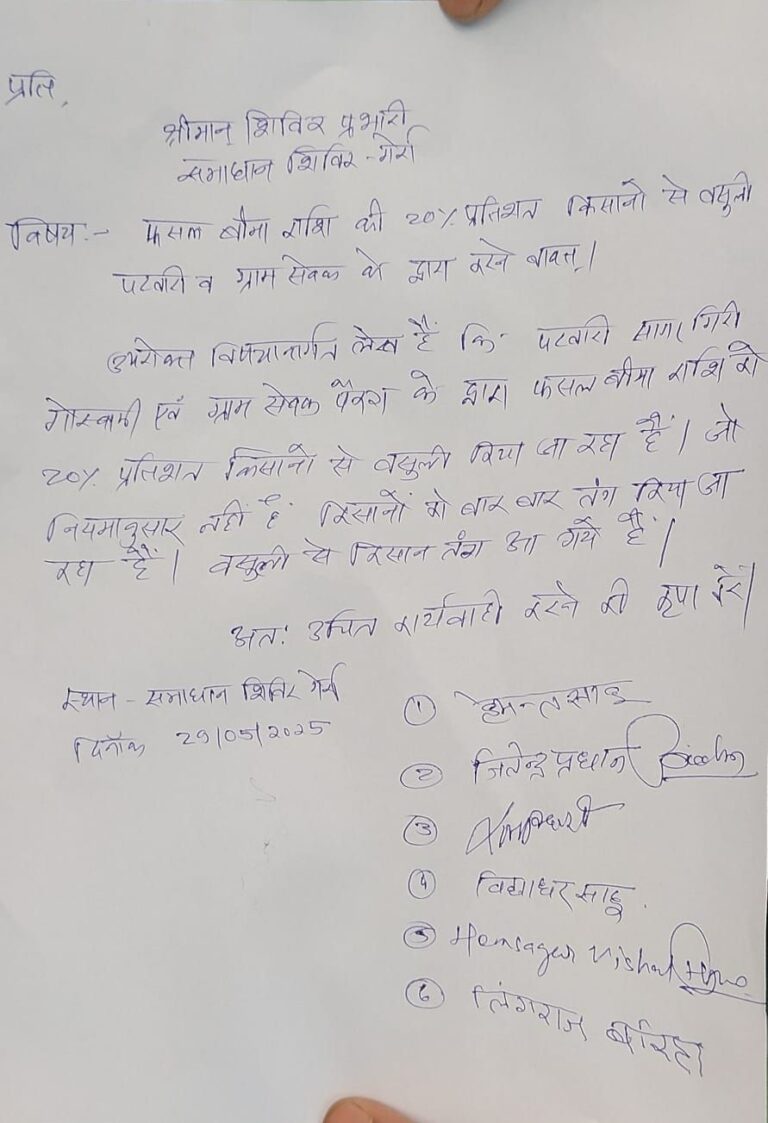 प्रति,
श्रीमान् शिविर प्रभारी
समाधान शिविर - गेर्रा
विषय :- फसल बीमा राशि की 20% प्रतिशत किसानों से वसुली
पटवारी व ग्राम सेवक के द्वारा करने बावत्।
उपरोक्त विषयान्तर्गत लेख है कि पटवारी सागर गिरी
गोस्वामी एवं ग्राम सेवक पैंकरा के द्वारा फसल बीमा राशि को
20% प्रतिशत किसानों से वसुली किया जा रहा है। जो
नियमानुसार नहीं है किसानों को बार बार तंग किया जा
रहा है। वसुली से किसान तंग आ गये हैं।
अतः उचित कार्यवाही करने की कृपा करें।
स्थान - समाधान शिविर गेर्रा
दिनाँक 29/05/2025
① हेमन्त साहु
② जितेन्द्र प्रधान
③
④ विद्याधर साहू.
⑤ Hemsagar Vishal
⑥ लिंगराज बरिहा